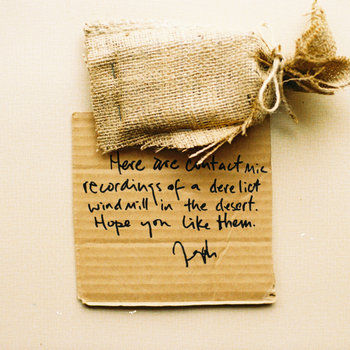 Here are contact mic
recordings of a derelict
windmill in the desert.
Hope you like them.